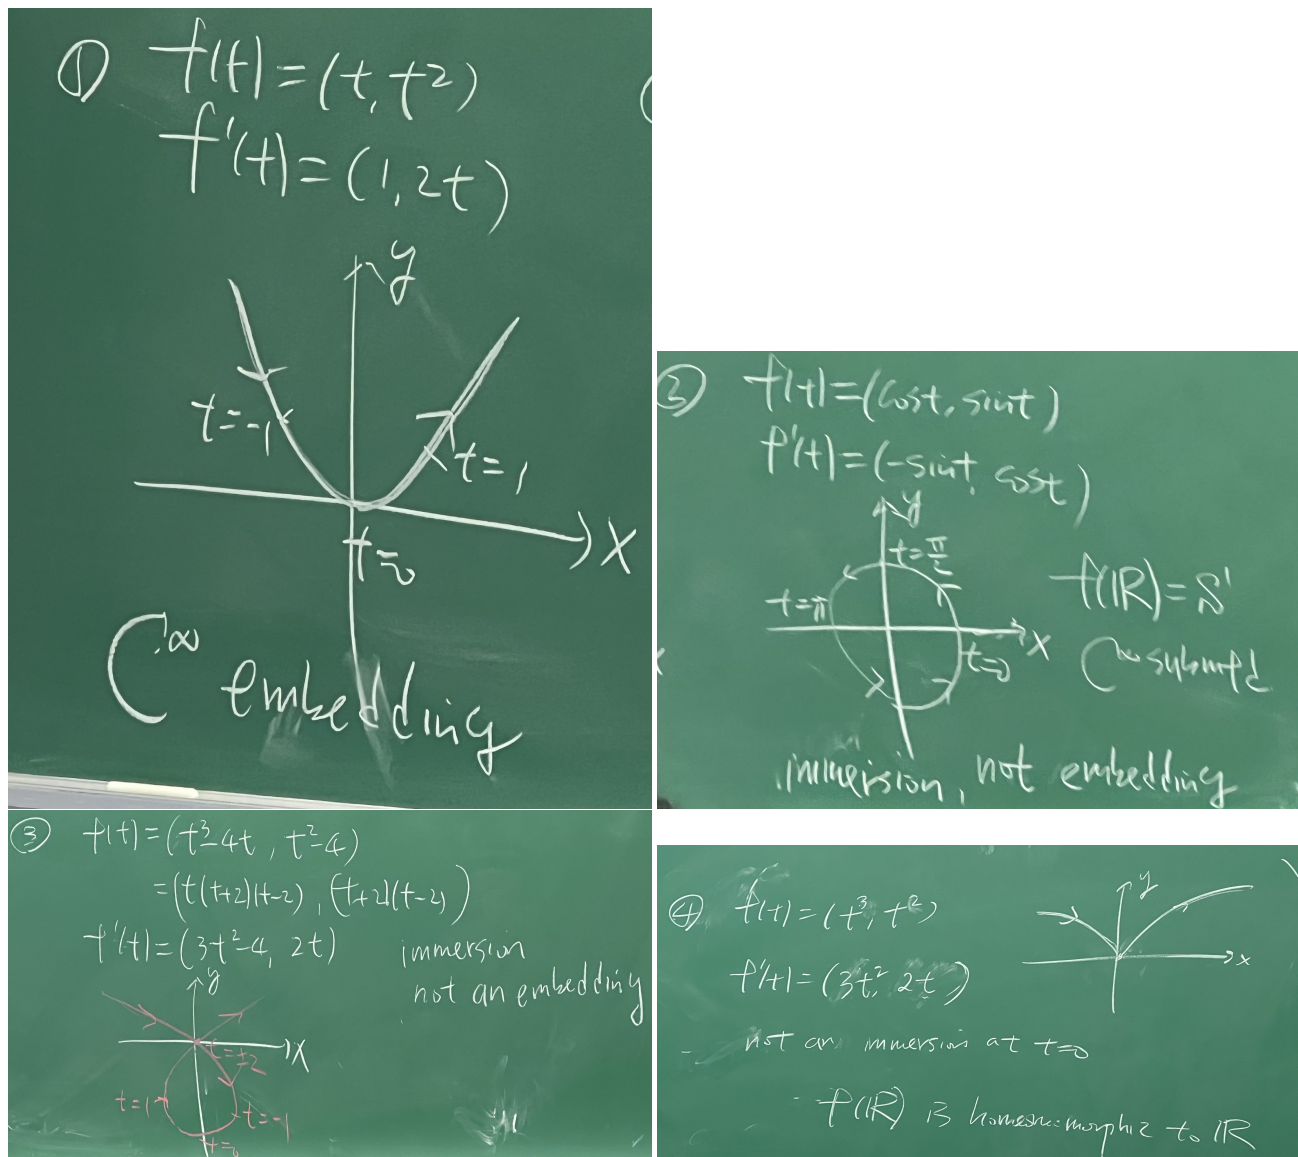 ① f(t)=(t, t²)
f'(t)=(1, 2t)
y
t=-1
t=1
x
t=0
C∞ embedding
② f(t)=(cost, sint)
f'(t)=(-sint, cost)
y
t=π/2
t=π
f(ℝ)=S¹
x
t=0
C∞ submfd
immersion, not embedding
③ f(t)=(t³-4t, t²-4)
=(t(t+2)(t-2), (t+2)(t-2))
f'(t)=(3t²-4, 2t)
immersion
not an embedding
y
x
t=±2
t=1
t=-1
t=0
④ f(t)=(t³, t²)
y
x
f'(t)=(3t², 2t)
not an immersion at t=0
f(ℝ) is homeomorphic to ℝ